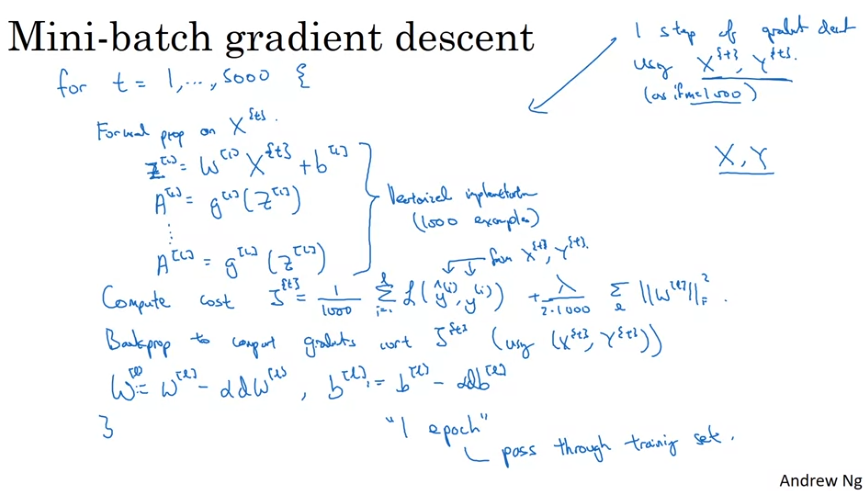 Mini-batch gradient descent
for t = 1, ..., 5000 {
1 step of gradient descent
using X^{t}, Y^{t}.
(as if m=1000)
X, Y
Forward prop on X^{t}.
Z^[1] = W^[1] X^{t} + b^[1]
A^[1] = g^[1](Z^[1])
⋮
A^[L] = g^[L](Z^[L])
Vectorized implementation
(1000 examples)
from X^{t}, Y^{t}.
Compute cost J^{t} = 1/1000 Σ_{i=1}^{l} L(ŷ^(i), y^(i)) + λ/(2·1000) Σ_l ||W^[l]||_F^2.
Backprop to comput gradients wrt J^{t} (using (X^{t}, Y^{t}))
W^[l] := W^[l] - αdW^[l], b^[l] := b^[l] - αdb^[l]
}
"1 epoch"
pass through training set.
Andrew Ng